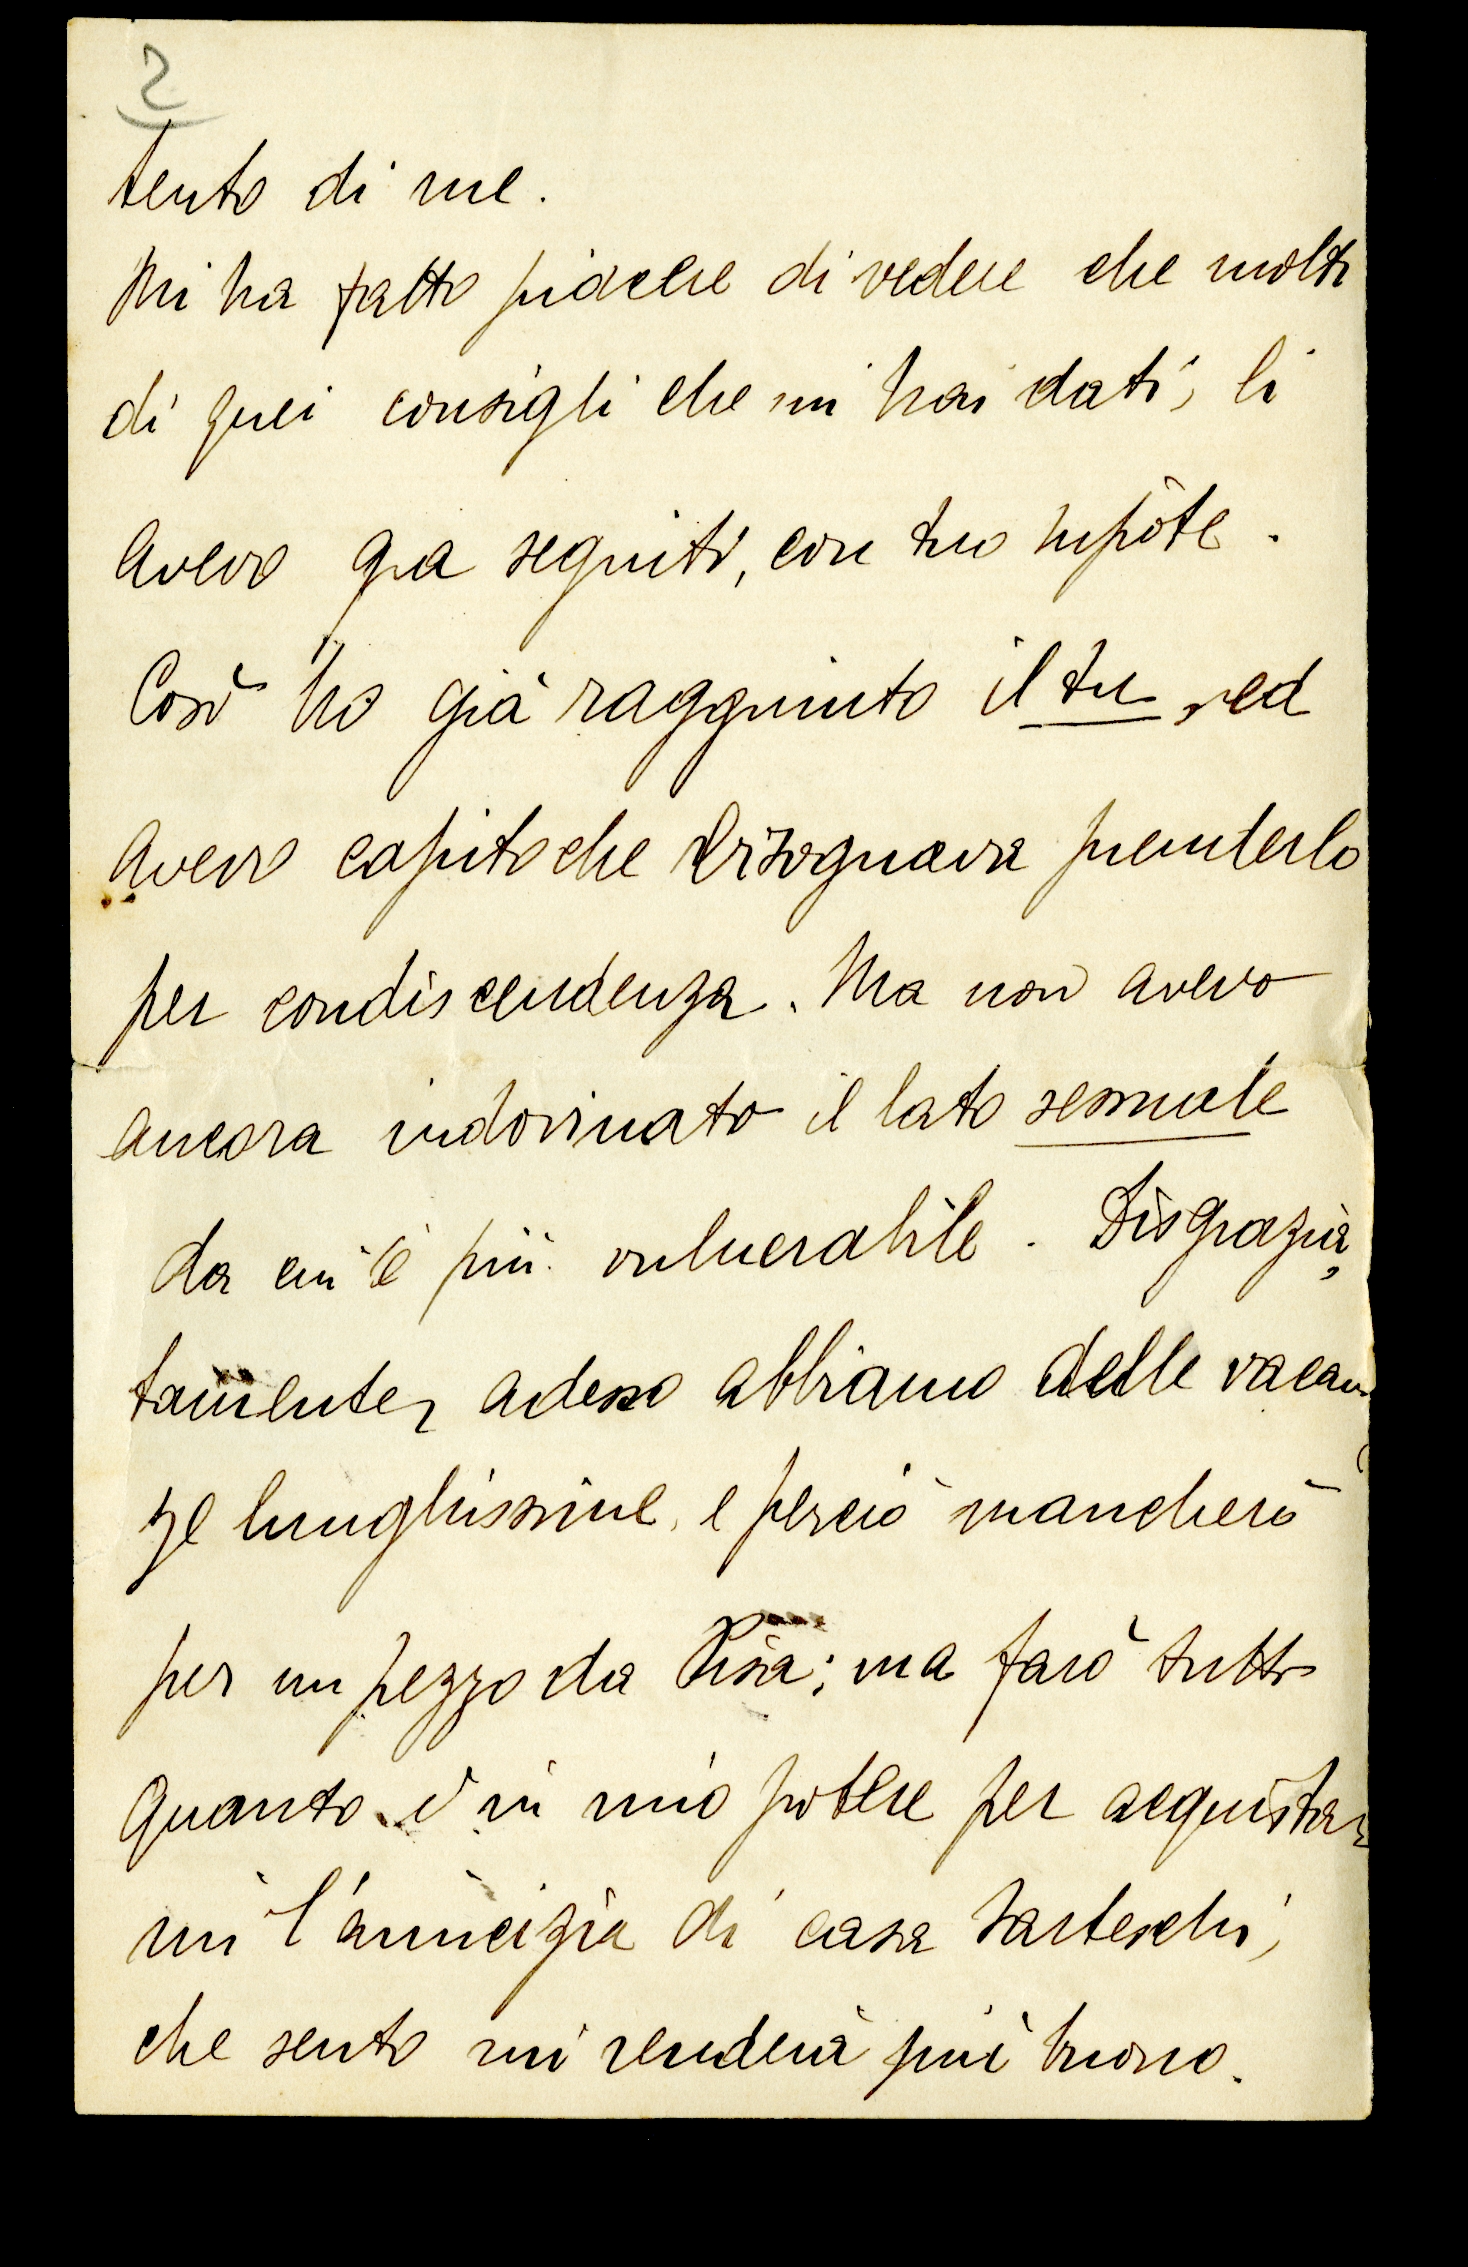 2
tento di me.
Mi ha fatto piacere di vedere che molti
di quei consigli che mi hai dati, li
avevo già seguiti, con tuo nipote.
Così ho già raggiunto il tu, ed
avevo capito che bisognava prenderlo
per condiscendenza. Ma non avevo
ancora indovinato il lato sessuale
da cui è più vulnerabile. Disgrazia,
tamente, adesso abbiamo delle vacan
ze lunghissime, e perciò mancherò
per un pezzo da Pisa; ma farò tutto
quanto è in mio potere per acquistar
mi l'amicizia di casa
che sento mi renderà più buono.